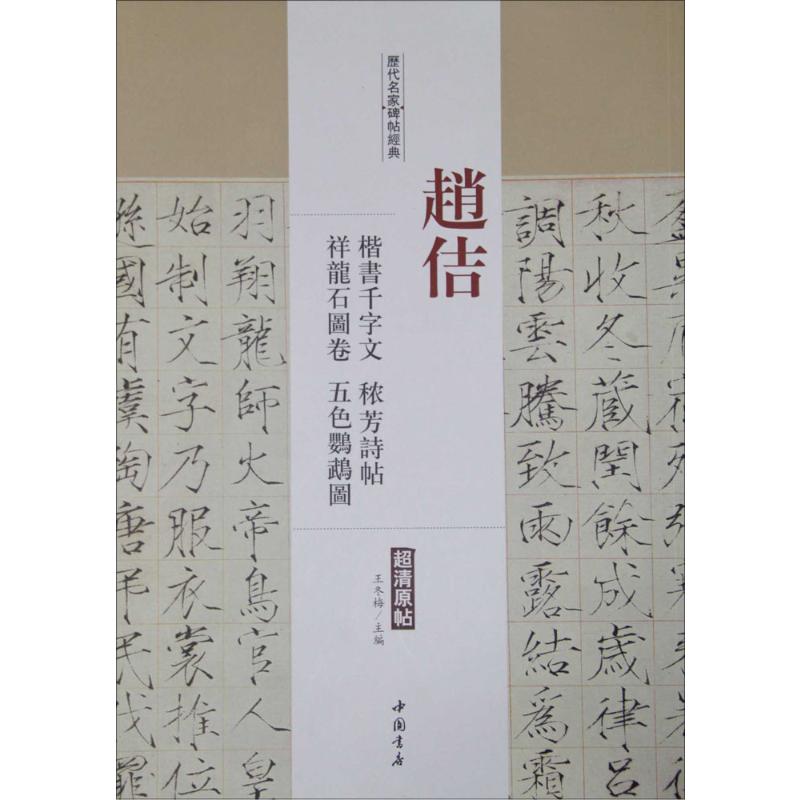 歷代名家碑帖經典
趙佶
楷書千字文 穠芳詩帖
祥龍石圖卷 五色鸚鵡圖
超清原帖
王冬梅/主編
中国书店
秋收冬藏閏餘成歲律呂
調陽雲騰致雨露結爲霜
羽翔龍師火帝鳥官人皇
始制文字乃服衣裳推位
遜國有虞陶唐弔民伐罪